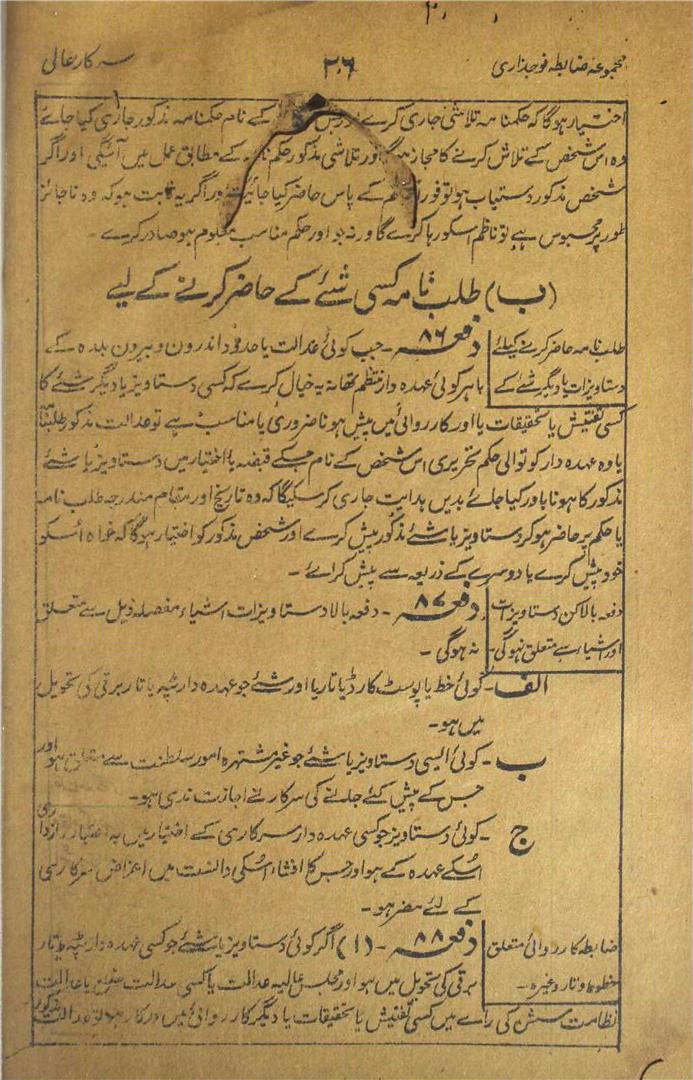 مجموعہ ضابطہ فوجداری ۲۶ سرکار عالی
اختیار ہوگا کہ حکمنامہ تلاشی جاری کرے اور جس کے نام حکمنامہ مذکور جاری کیا جائے
وہ اس شخص کے تلاش کرنے کا مجاز ہوگا اور تلاشی مذکور حکمنامہ کے مطابق عمل میں آئیگی اور اگر
شخص مذکور دستیاب ہو تو فوراً ناظم کے پاس حاضر کیا جائیگا اور اگر یہ ثابت ہو کہ وہ ناجائز
طور پر محبوس ہے تو ناظم اسکو رہا کرے گا ورنہ جو اور حکم مناسب معلوم ہو صادر کرے ۔
(ب) طلب نامہ کسی شئے کے حاضر کرنے کے لیے
طلب نامہ حاضر کرنے کیلئے
دستاویزات یا دیگر شئے کے
دفعہ ۸۶ ۔ جب کوئی عدالت یا حدود اندرون و بیرون بلدہ کے
باہر کوئی عہدہ دار منتظم تھانہ یہ خیال کرے کہ کسی دستاویز یا دیگر شئے کا
کسی تفتیش یا تحقیقات یا اور کارروائی میں پیش ہونا ضروری یا مناسب ہے تو عدالت مذکور طلبنامہ
یا وہ عہدہ دار کوتوالی حکم تحریری اس شخص کے نام جسکے قبضہ یا اختیار میں دستاویز یا شئے
مذکور کا ہونا باور کیا جائے بدیں ہدایت جاری کرسکیگا کہ وہ تاریخ اور مقام مندرجہ طلب نامہ
یا حکم پر حاضر ہو کر دستاویز یا شئے مذکور پیش کرے اور شخص مذکور کو اختیار ہوگا کہ خواہ اسکو
خود پیش کرے یا دوسرے کے ذریعہ سے پیش کرائے ۔
دفعہ بالا کن دستاویزات
اور اشیا سے متعلق نہوگی ۔
دفعہ ۸۷ ۔ دفعہ بالا دستاویزات اشیاء مفصلہ ذیل سے متعلق
نہ ہوگی ۔
الف ۔ کوئی خط یا پوسٹ کارڈ یا تار یا اور شئے جو عہدہ دار ٹپہ یا تار برقی کی تحویل
میں ہو ۔
ب ۔ کوئی ایسی دستاویز یا شئے جو غیر مشتہرہ امور سلطنت سے متعلق ہو اور
جس کے پیش کئے جانے کی سرکار نے اجازت ندی ہو ۔
ج ۔ کوئی دستاویز جو کسی عہدہ دار سرکاری کے اختیار میں بہ اعتبار رازداری
اسکے عہدہ کے ہو اور جس کا افشاء اسکی دانست میں اغراض سرکاری
کے لئے مضر ہو ۔
ضابطہ کارروائی متعلق
خطوط و تار وغیرہ ۔
دفعہ ۸۸ ۔ (۱) اگر کوئی دستاویز یا شئے جو کسی عہدہ دار ٹپہ یا تار
برقی کی تحویل میں ہو اور مجلس عالیہ عدالت یا کسی عدالت ضلع یا عدالت
نظامت سشن کی رائے میں کسی تفتیش یا تحقیقات یا دیگر کارروائی میں درکار ہو تو عدالت مذکور